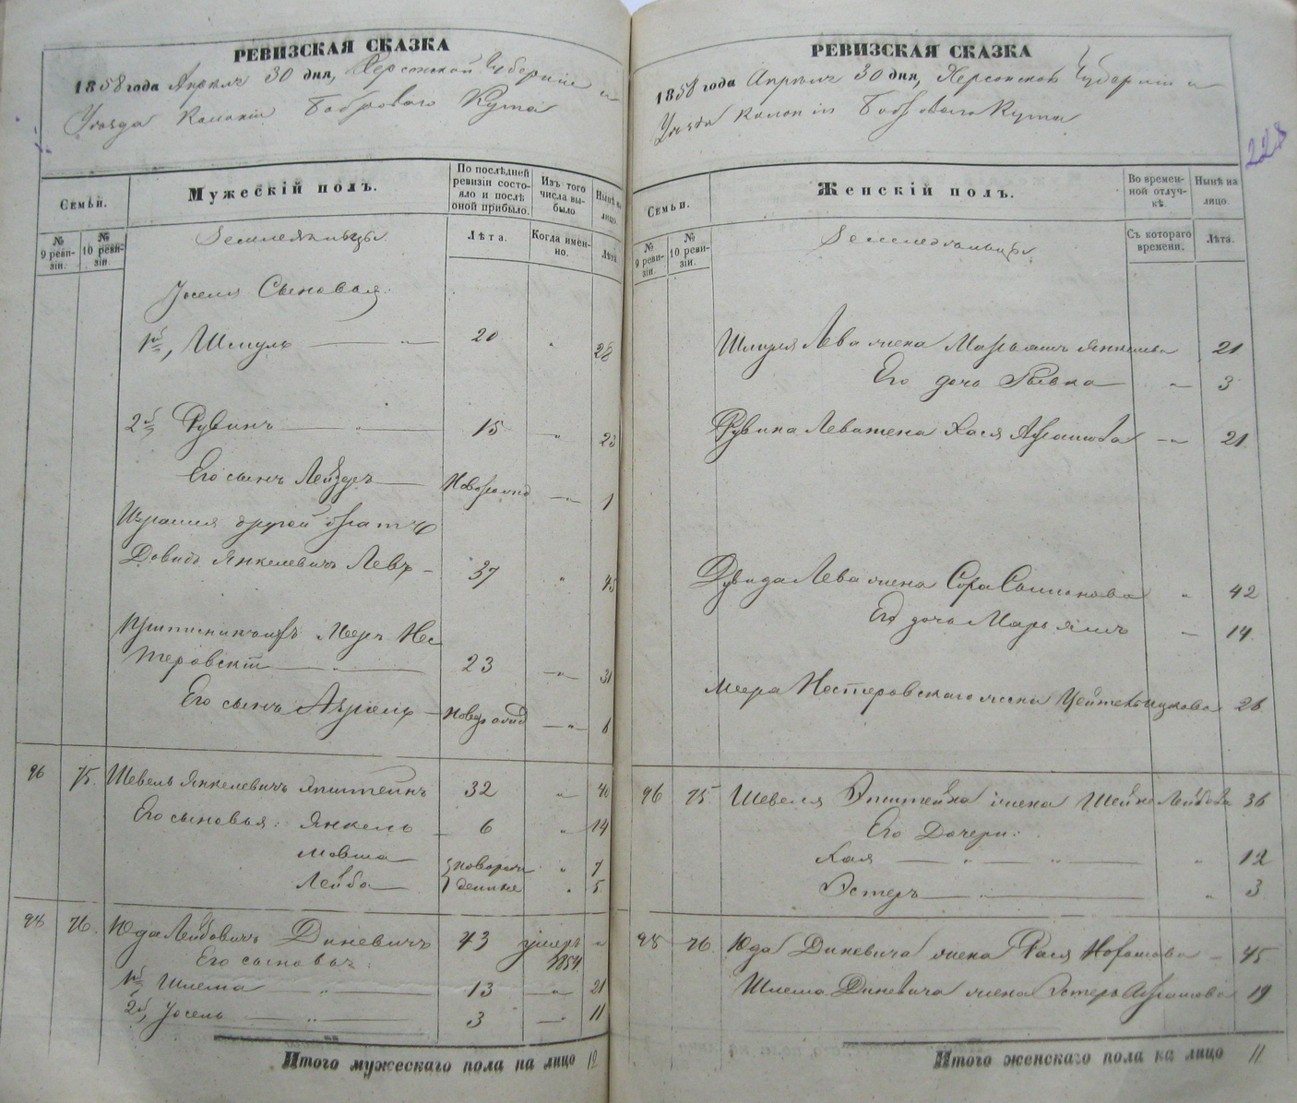 РЕВИЗСКАЯ СКАЗКА
1858 года Апреля 30 дня, Херсонской Губернiи и
Уезда Колонiи Боброваго Кута
Семьи.
№ 9 ревизiи.
№ 10 ревизiи.
Мужескiй полъ.
По послѣдней ревизiи состояло и послѣ оной прибыло.
Изъ того числа выбыло
Нынѣ на лицо.
Лѣта.
Когда именно.
Лѣта
Земледельцы
Иоселя Сыновья
1й, Шмуль 20 " 28
2й, Рувинъ 15 " 23
Его сынъ Лейзеръ Новорожд " 1
Израиля другой братъ
Довидъ Янкелевичъ Левъ 37 " 45
Меер Нес
теровскiй 23 " 31
Его сынъ Новорожд " 6
96 75. Шевель Янкелевичъ Эпштейнъ 32 " 40
Его сыновья: Янкель 6 " 14
Мовша новорож " 7
Лейба денные " 5
98 76. Юда Лейбовичъ Диневичъ 43 умеръ 1854 "
Его сыновья:
1й, Шлема 13 " 21
2й, Иосель 3 11
Итого мужескаго пола на лицо 12
РЕВИЗСКАЯ СКАЗКА
1858 года Апреля 30 дня, Херсонской Губернiи и
Уезда Колонiи Бобровагo Кута
228
Семьи.
№ 9 ревизiи.
№ 10 ревизiи.
Женскiй полъ.
Во временной отлучкѣ.
Нынѣ на лицо.
Съ котораго времени.
Лѣта.
Земледельцы
Шмуля Лева жена Марьямъ Янкелева 21
Его дочь Ривка " 3
Рувина Лева жена Хася Абрамова " 21
Дувида Лева жена Сора Симонова " 42
Его дочь Марьямъ " 14
Меера Нестеровскаго жена 26
96 75 Шевеля Эпштейна жена Шейне Лейбова 36
Его Дочери:
Хая " " " 12
Эстеръ " 3
98 76. Юда Диневича жена 45
Шлема Диневича жена Эстеръ Абрамова 19
Итого женскаго пола на лицо 11